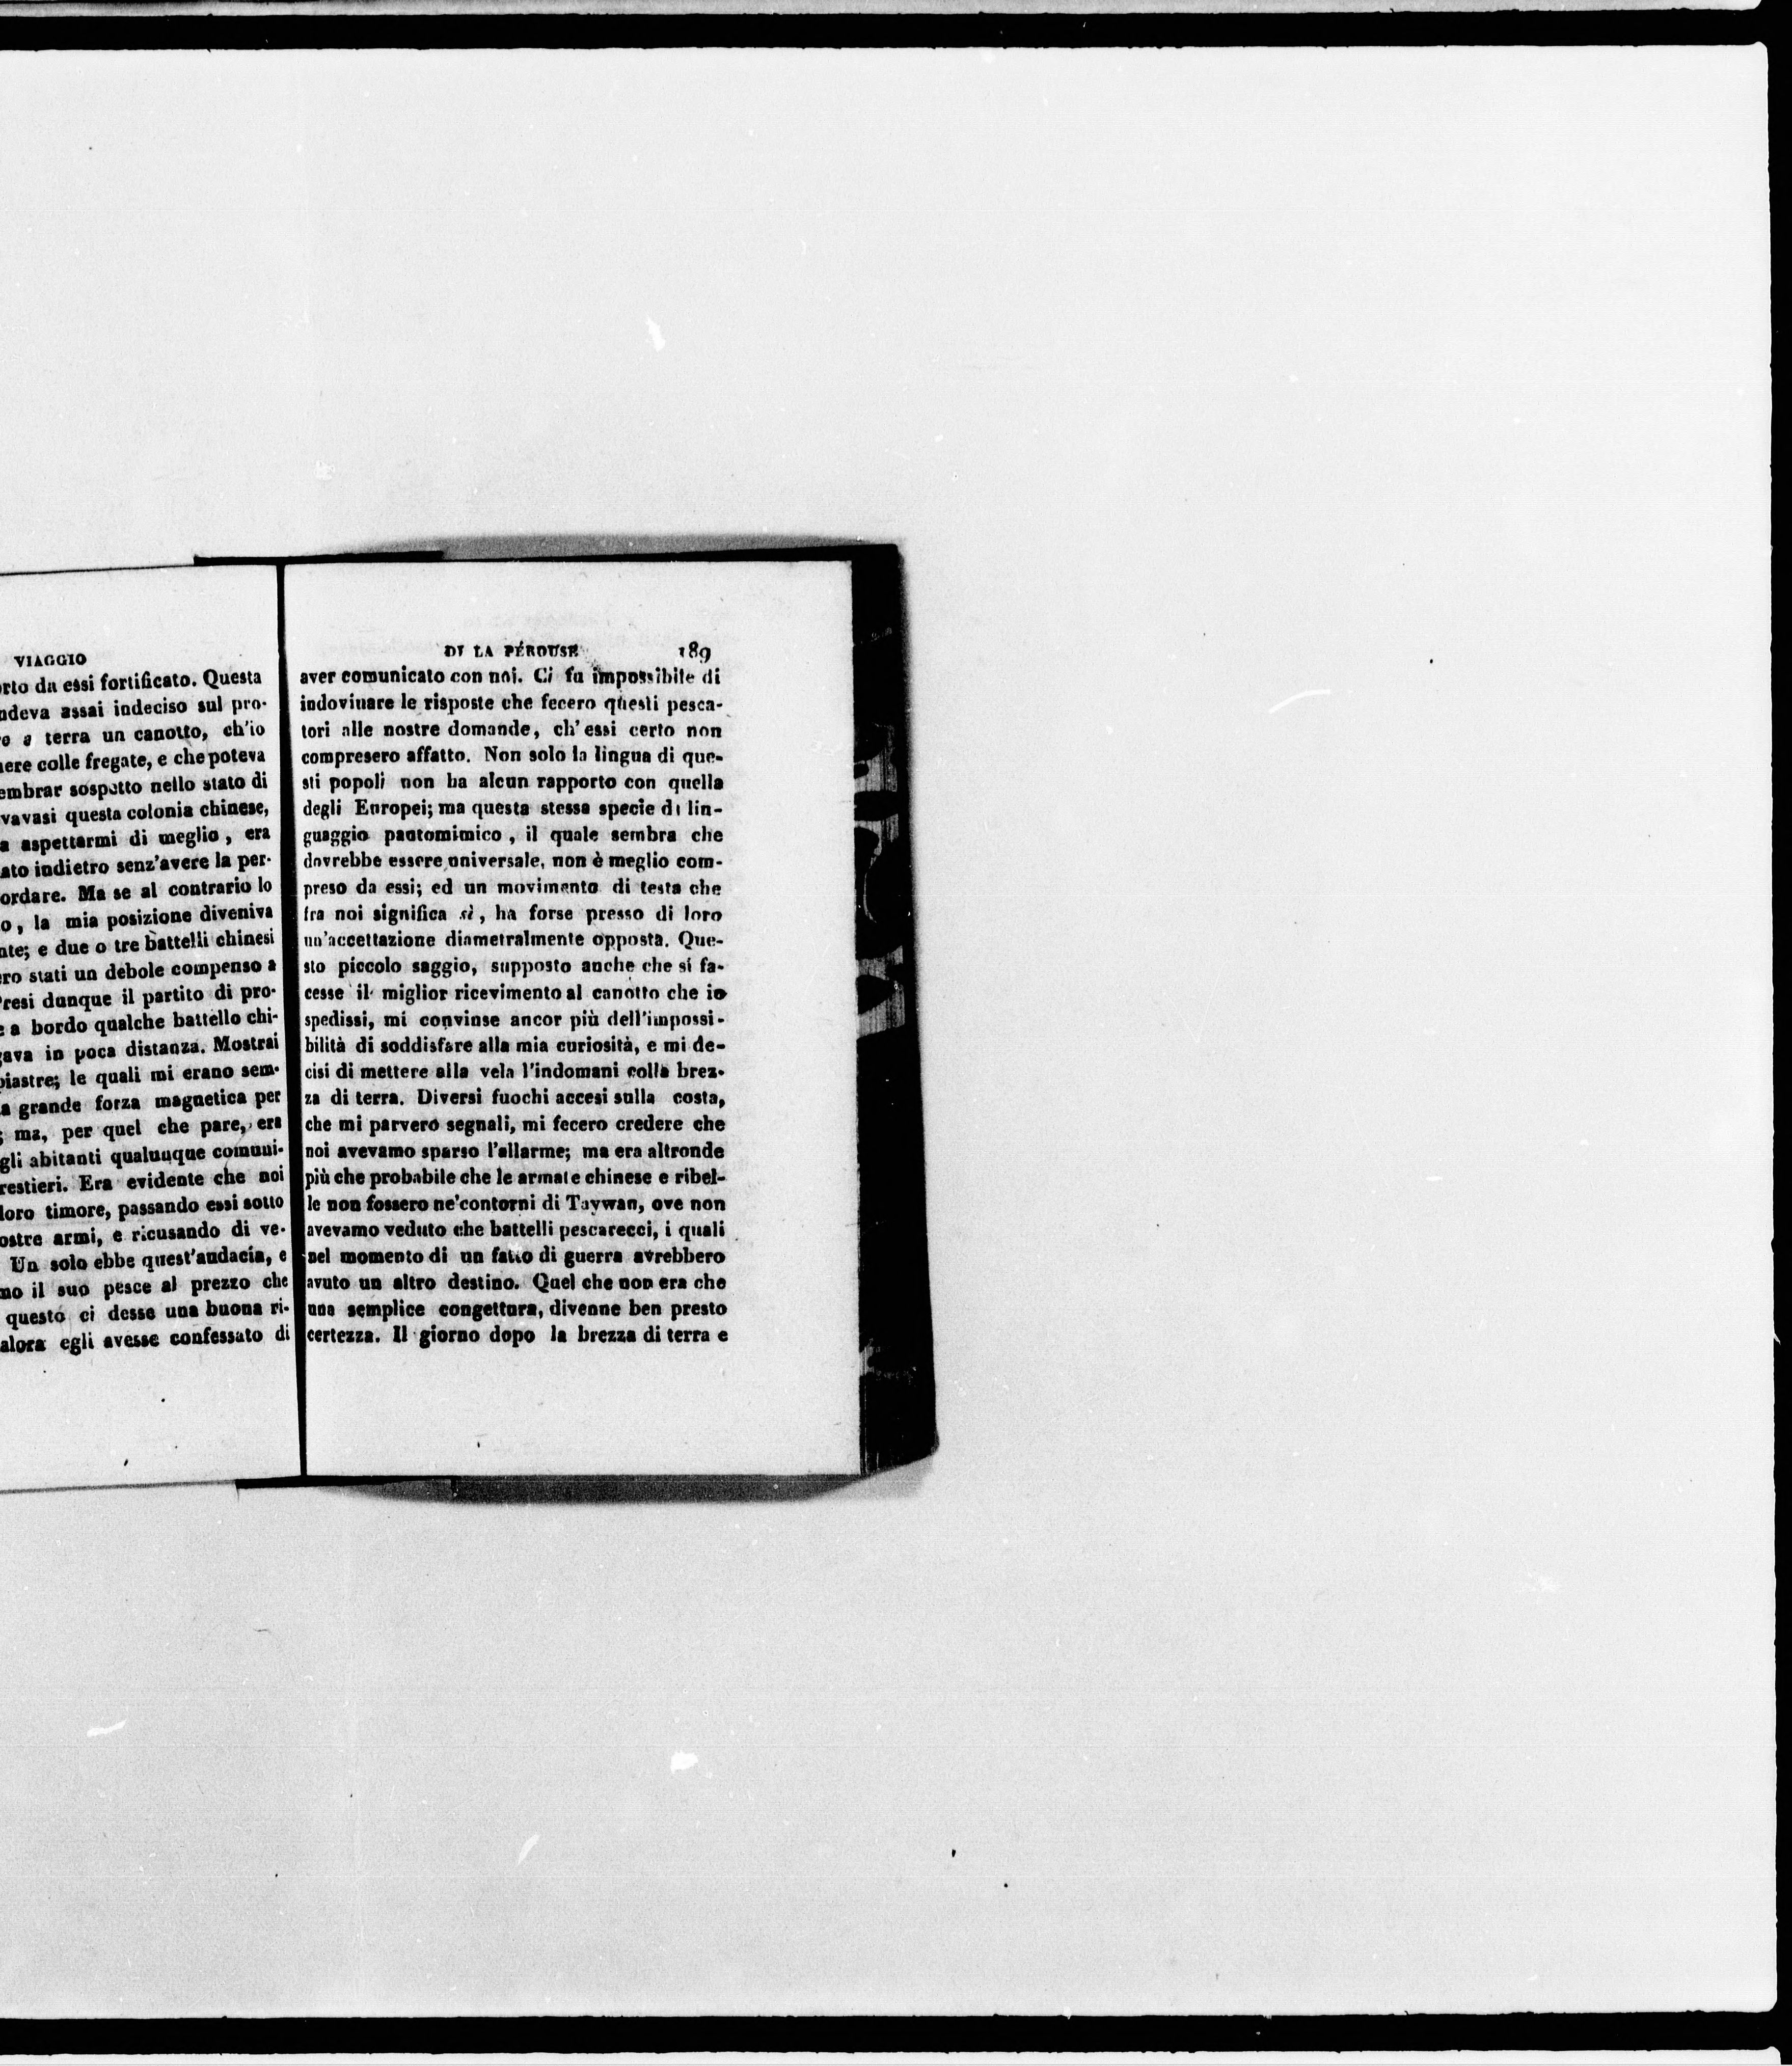 VIAGGIO
rto da essi fortificato. Questa
ndeva assai indeciso sul pro-
terra un canotto, ch'io
ere colle fregate, e che poteva
embrar sospetto nello stato di
vavasi questa colonia chinese,
a aspettarmi di meglio, era
ato indietro senz'avere la per-
ordare. Ma se al contrario lo
o, la mia posizione diveniva
nte; e due o tre battelli chinesi
ero stati un debole compenso a
resi dunque il partito di pro-
e a bordo qualche battello chi-
gava in poca distanza. Mostrai
piastre; le quali mi erano sem-
a grande forza magnetica per
; ma, per quel che pare, era
gli abitanti qualunque comuni-
restieri. Era evidente che noi
loro timore, passando essi sotto
ostre armi, e ricusando di ve-
Un solo ebbe quest'audacia, e
mo il suo pesce al prezzo che
questo ci desse una buona ri-
alora egli avesse confessato di
DI LA PÉROUSE 189
aver comunicato con noi. Ci fu impossibile di
indovinare le risposte che fecero questi pesca-
tori alle nostre domande, ch'essi certo non
compresero affatto. Non solo la lingua di que-
sti popoli non ha alcun rapporto con quella
degli Europei; ma questa stessa specie di lin-
guaggio pantomimico, il quale sembra che
dovrebbe essere universale, non è meglio com-
preso da essi; ed un movimento di testa che
fra noi significa sì, ha forse presso di loro
un'accettazione diametralmente opposta. Que-
sto piccolo saggio, supposto anche che si fa-
cesse il miglior ricevimento al canotto che io
spedissi, mi convinse ancor più dell'impossi-
bilità di soddisfare alla mia curiosità, e mi de-
cisi di mettere alla vela l'indomani colla brez-
za di terra. Diversi fuochi accesi sulla costa,
che mi parvero segnali, mi fecero credere che
noi avevamo sparso l'allarme; ma era altronde
più che probabile che le armate chinese e ribel-
le non fossero ne'contorni di Taywan, ove non
avevamo veduto che battelli pescarecci, i quali
nel momento di un fatto di guerra avrebbero
avuto un altro destino. Quel che non era che
una semplice congettura, divenne ben presto
certezza. Il giorno dopo la brezza di terra e